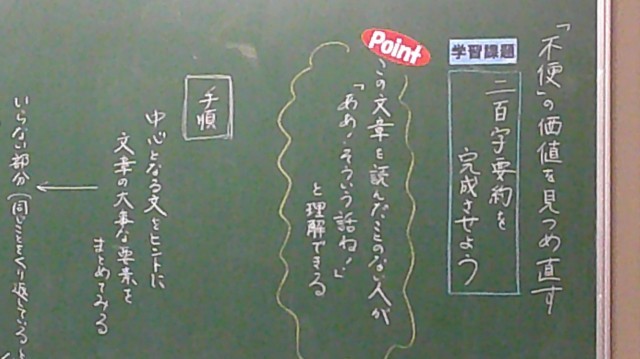 「不便」の価値を見つめ直す
学習課題
二百字要約を
完成させよう
Point
この文章を読んだことのない人が
「ああ!そういう話ね!」
と理解できる
手順
中心となる文をヒントに
文章の大事な要素を
まとめてみる
←
いらない部分(同じことをくり返していると